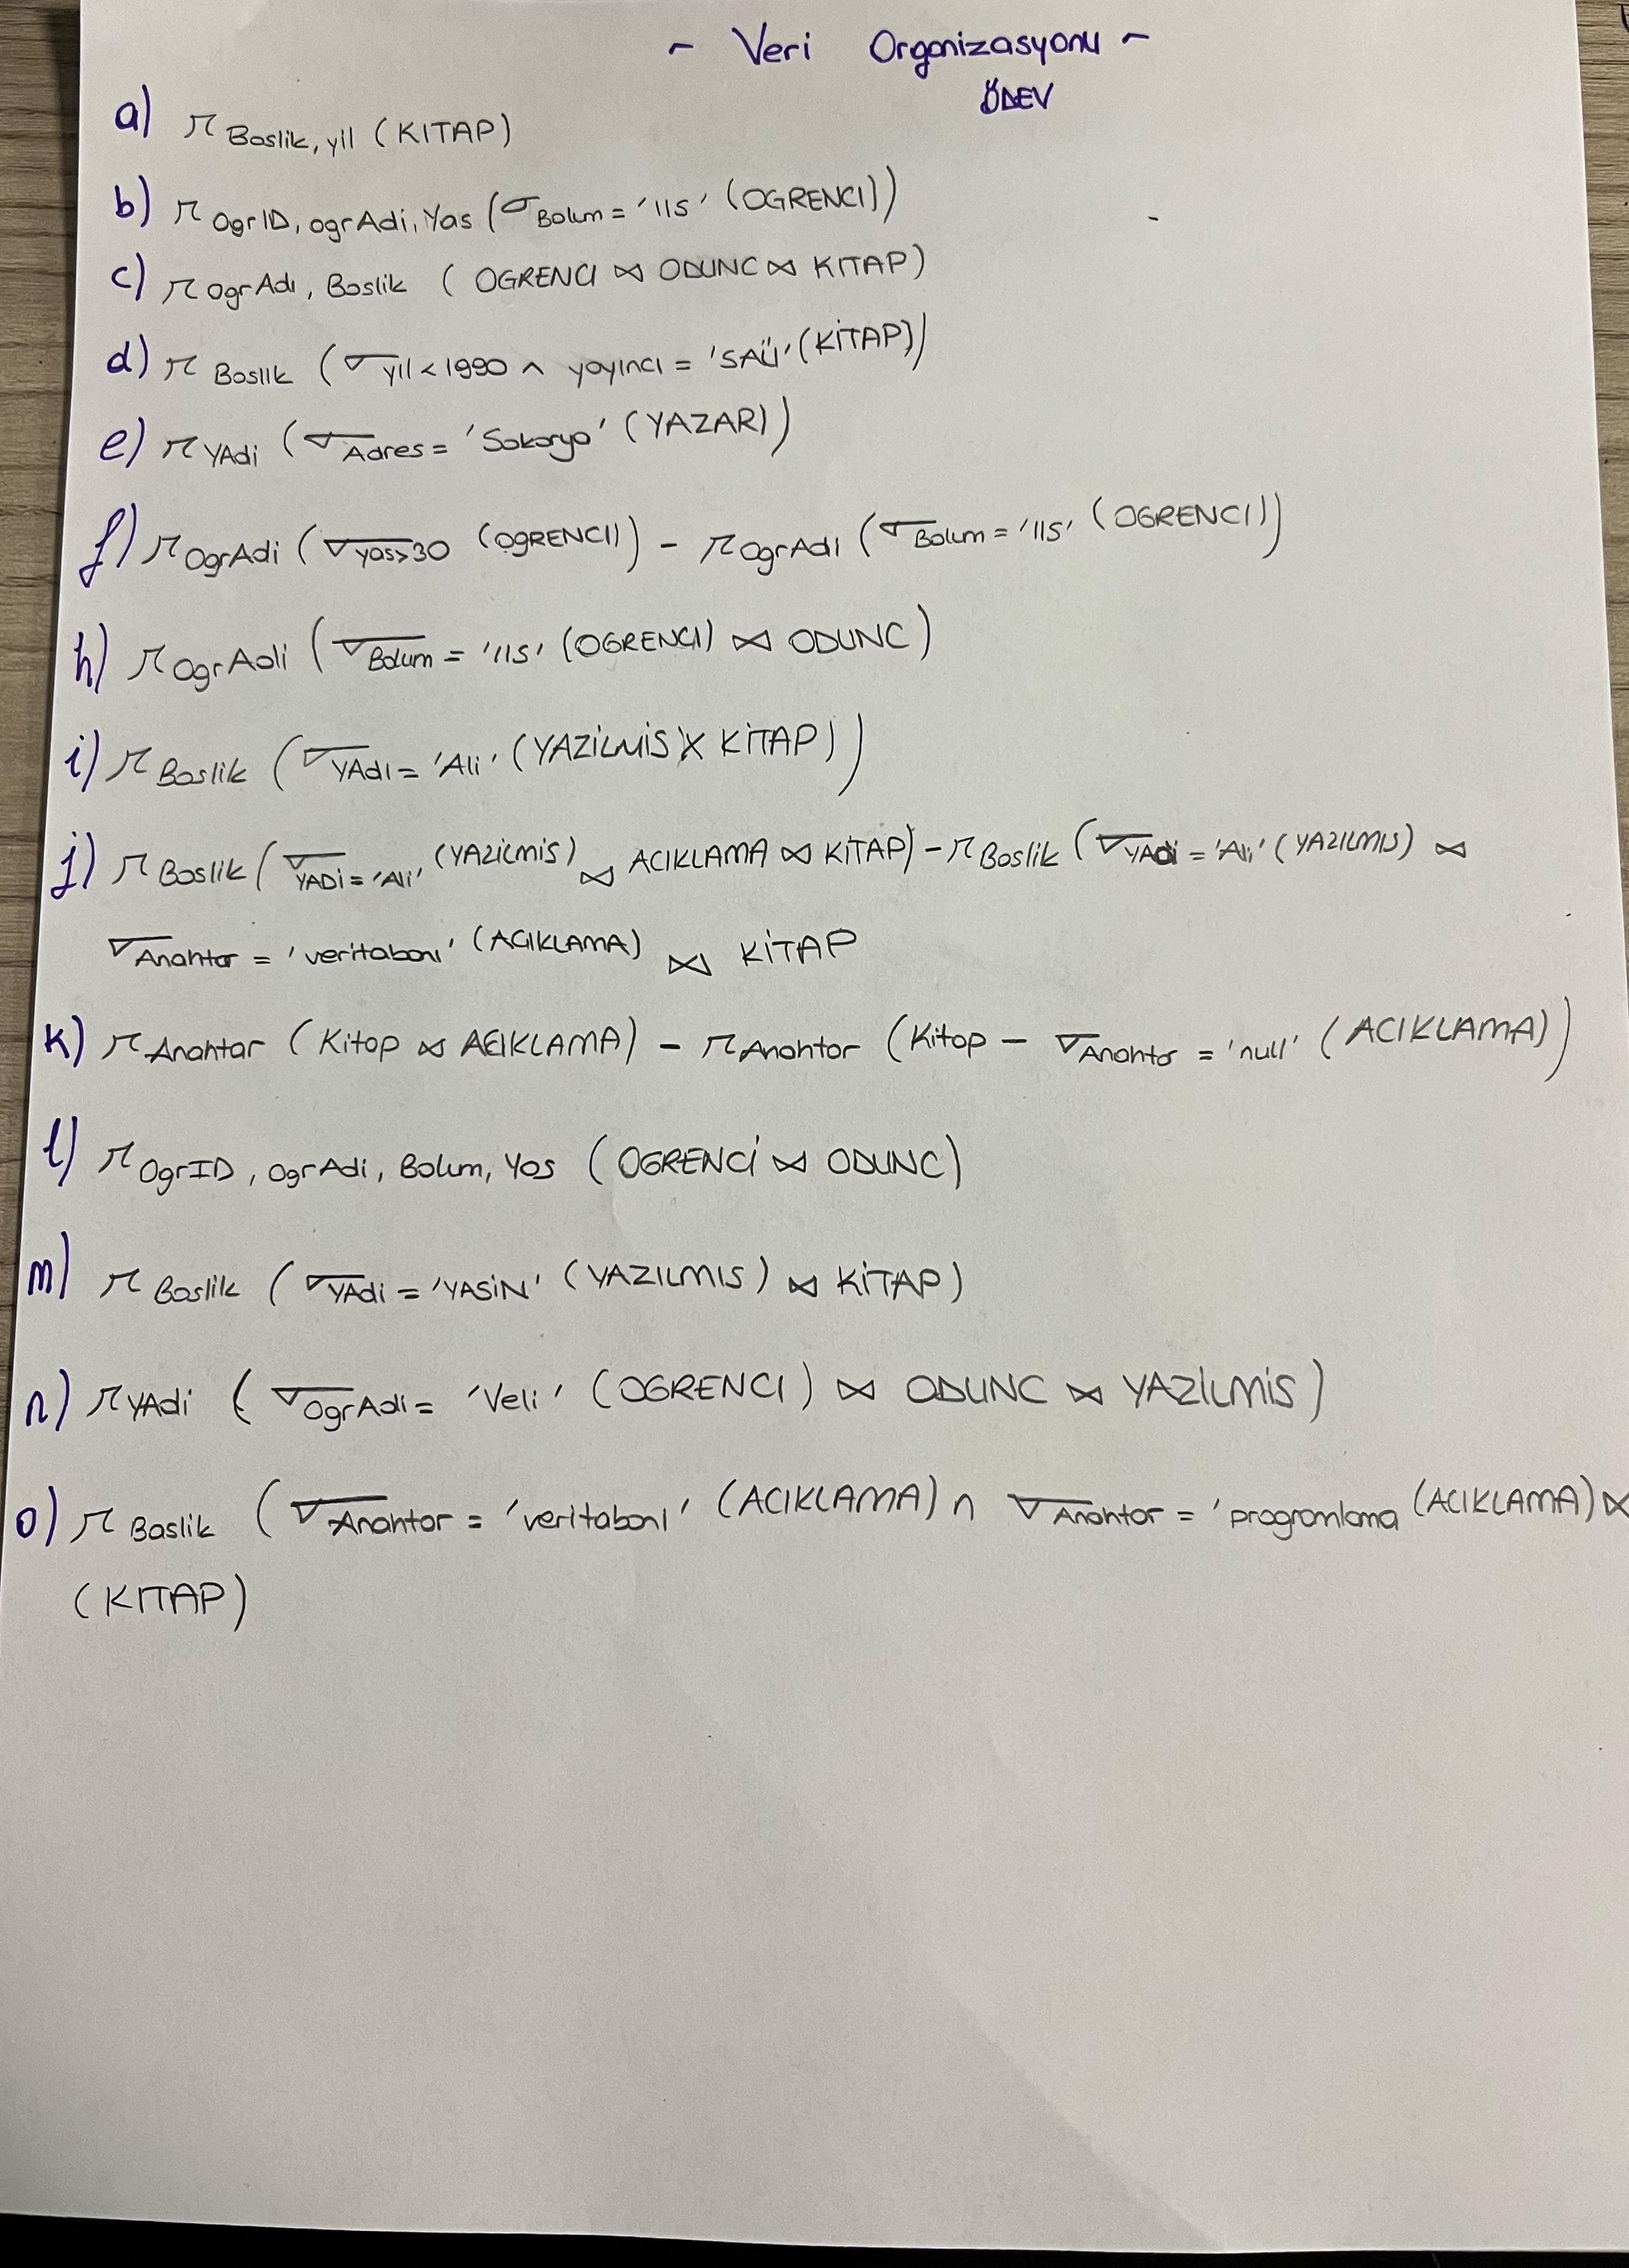 ~ Veri Organizasyonu ~
ÖDEV
a) π Baslik, yil (KITAP)
b) π OgrID, ogrAdi, Yas (σ Bolum = 'IIS' (OGRENCI))
c) π OgrAdı, Baslik ( OGRENCI ⋈ ODUNC ⋈ KITAP)
d) π Baslık (σ yıl < 1990 ^ yayıncı = 'SAÜ' (KİTAP))
e) π YAdi (σ Adres = 'Sakarya' (YAZAR))
f) π OgrAdi (σ yas>30 (OGRENCI)) - π OgrAdı (σ Bolum = 'IIS' (OGRENCI))
h) π OgrAdi (σ Bolum = 'IIS' (OGRENCI) ⋈ ODUNC)
i) π Baslik (σ YAdı = 'Ali' (YAZİLMİS X KİTAP))
j) π Baslik (σ YADİ = 'Ali' (YAZİLMİS) ⋈ ACIKLAMA ⋈ KİTAP) - π Baslik (σ YAdi = 'Ali' (YAZILMIS) ⋈
σ Anahtar = 'veritabanı' (ACIKLAMA) ⋈ KİTAP
k) π Anahtar (Kitap ⋈ ACIKLAMA) - π Anahtar (Kitap - σ Anahtar = 'null' (ACIKLAMA))
l) π OgrID, OgrAdi, Bolum, Yas (OGRENCİ ⋈ ODUNC)
m) π Baslik (σ YAdi = 'YASİN' (YAZILMIS) ⋈ KİTAP)
n) π YAdi (σ OgrAdi = 'Veli' (OGRENCI) ⋈ ODUNC ⋈ YAZİLMİS)
o) π Baslik (σ Anahtar = 'veritabanı' (ACIKLAMA) ∩ σ Anahtar = 'programlama (ACIKLAMA) ⋈
(KITAP)